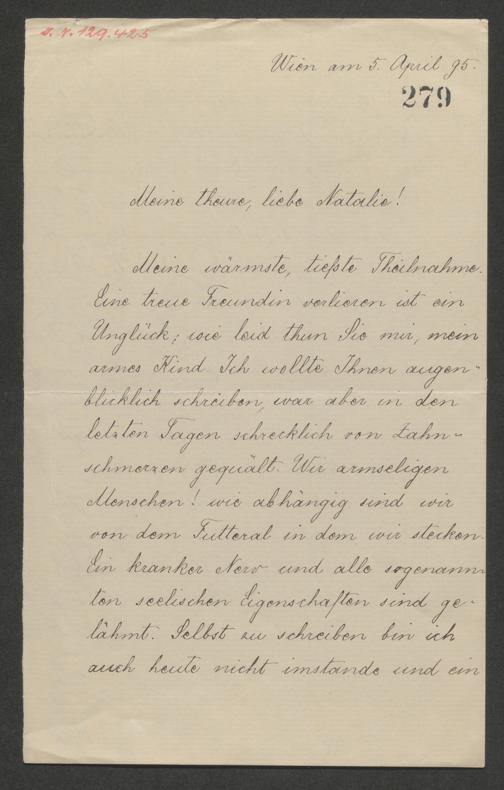 J.N. 129.425
Wien am 5. April 95.
279
Meine theure, liebe Natalie!
Meine wärmste, tiefste Theilnahme.
Eine treue Freundin verlieren ist ein
Unglück; wie leid thun Sie mir, mein
armes Kind Ich wollte Ihnen augen-
blicklich schreiben, war aber in den
letzten Tagen schrecklich von Zahn-
schmerzen gequält. Wir armseligen
Menschen! wie abhängig sind wir
von dem Futteral in dem wir stecken.
Ein kranker Nerv und alle sogenann-
ten seelischen Eigenschaften sind ge-
lähmt. Selbst zu schreiben bin ich
auch heute nicht imstande und ein